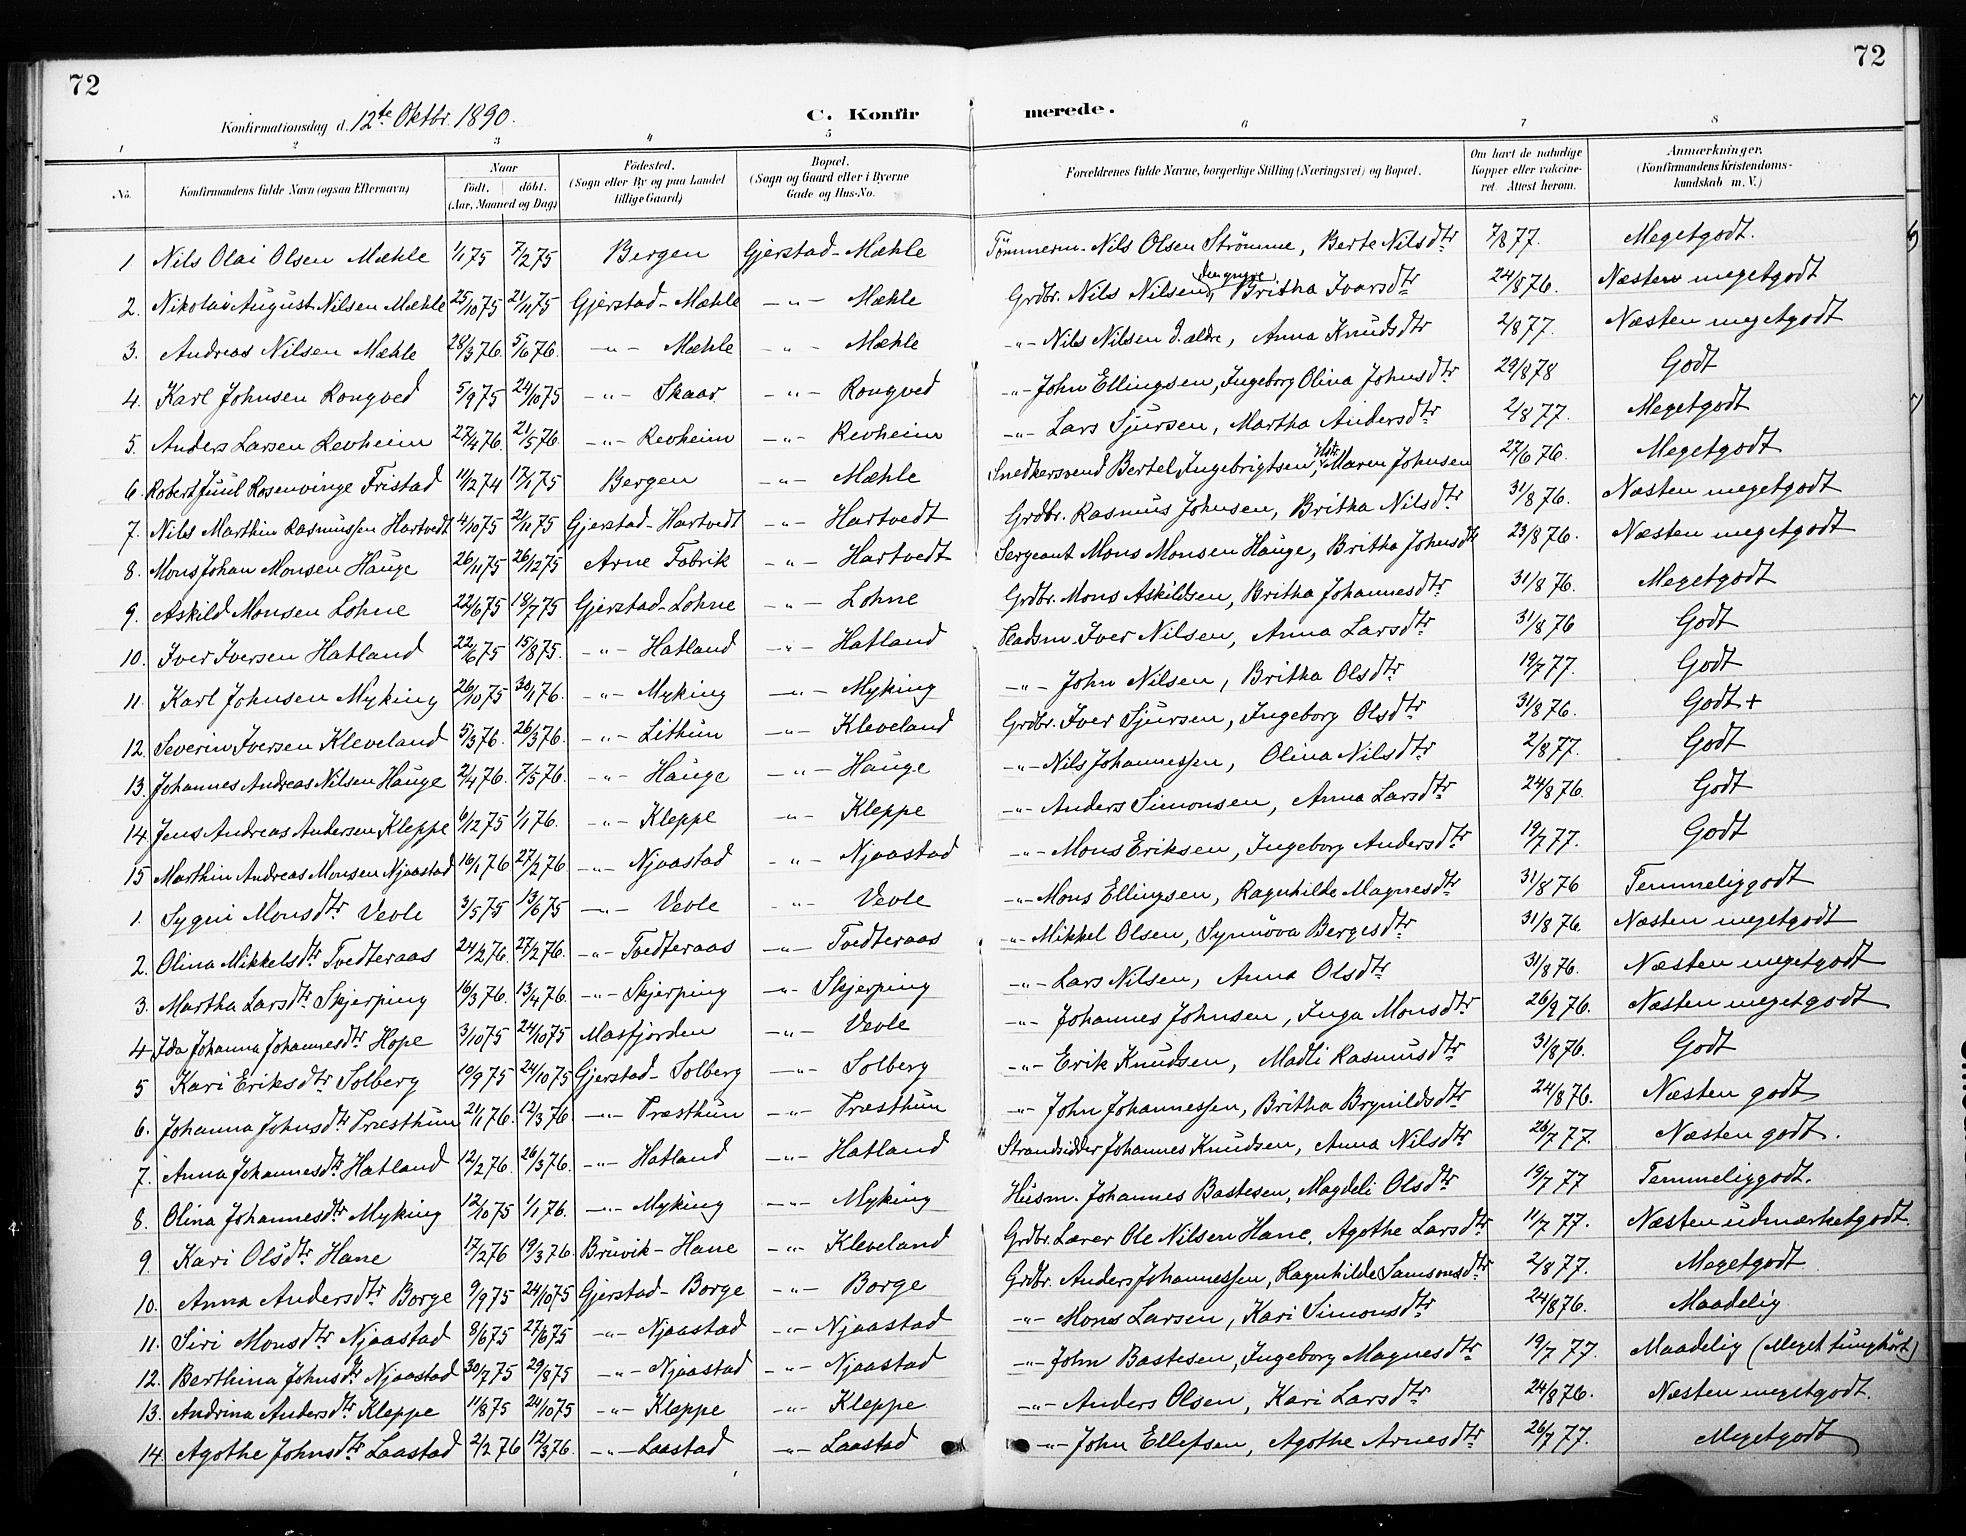 72
72
Konfirmationsdag d. 12te Oktbr. 1890.
C. Konfirmerede.
1 2 3 4 5 6 7 8
No. | Konfirmandens fulde Navn (ogsaa Efternavn) | Naar født. døbt. (Aar, Maaned og Dag) | Fødested. (Sogn eller By og paa Landet tillige Gaard) | Bopæl. (Sogn og Gaard eller i Byerne Gade og Hus-No. | Forældrenes fulde Navne, borgerlige Stilling (Næringsvei) og Bopæl. | Om havt de naturlige Kopper eller vakcineret. Attest herom. | Anmærkninger. (Konfirmandens Kristendomskundskab m. V.)
1 Nils Olai Olsen Mæhle 1/1 75 7/2 75 Bergen Gjerstad - Mæhle Tømmerm. Nils Olsen Strømme, Berte Nilsdtr 7/8 77. Megetgodt.
2. Nikolai August Nilsen Mæhle 25/10 75 21/11 75 Gjerstad - Mæhle -"- Mæhle Grdbr. Nils Nilsen den yngre, Britha Ivarsdtr 24/8 76. Næsten megetgodt
3. Andreas Nilsen Mæhle 28/3 76. 5/6 76. -"- Mæhle -"- Mæhle -"- Nils Nilsen d. ældre, Anna Knudsdtr 2/8 77. Næsten megetgodt
4. Karl Johnsen Rongved 5/9 75 24/10 75 -"- Skaar -"- Rongved -"- John Ellingsen, Ingeborg Olina Johnsdtr 29/8 78 Godt
5. Anders Larsen Revheim 27/4 76. 21/5 76. -"- Revheim -"- Revheim -"- Lars Sjursen, Martha Andersdtr 2/8 77. Megetgodt
6. Robert Juul Rosenvinge Fristad 11/12 74 17/1 75 Bergen -"- Mæhle Snedkersvend Bertel Ingebrigtsen, Maren Johnsen 27/6 76. Megetgodt
7. Nils Marthin Rasmussen Hartvedt 4/10 75 21/11 75 Gjerstad - Hartvedt -"- Hartvedt Grdbr. Rasmus Johnsen, Britha Nilsdtr 31/8 76. Næsten megetgodt
8. Mons Johan Monsen Hauge 26/11 75 26/12 75 Arne Fabrik -"- Hartvedt Sergeant Mons Monsen Hauge, Britha Johnsdtr 23/8 76. Næsten megetgodt
9. Askild Monsen Lohne 22/6 75 18/7 75 Gjerstad - Lohne -"- Lohne Grdbr. Mons Askildsen, Britha Johannesdtr 31/8 76. Megetgodt
10. Iver Iversen Hatland 22/6 75 15/8 75. -"- Hatland -"- Hatland Pladsm. Iver Nilsen, Anna Larsdtr 31/8 76 Godt
11. Karl Johnsen Myking 26/10 75 30/1 76. -"- Myking -"- Myking -"- John Nilsen, Britha Olsdtr 19/7 77. Godt
12. Severin Iversen Kleveland 5/3 76. 26/3 76. -"- Lithun -"- Kleveland Grdbr. Iver Sjursen, Ingeborg Olsdtr 31/8 76. Godt +
13. Johannes Andreas Nilsen Hauge 2/4 76. 7/5 76. -"- Hauge -"- Hauge -"- Nils Johannessen, Olina Nilsdtr 2/8 77. Godt
14. Jens Andreas Andersen Kleppe 6/12 75 1/1 76. -"- Kleppe -"- Kleppe -"- Anders Simonsen, Anna Larsdtr 24/8 76. Godt
15 Marthin Andreas Monsen Njaastad 16/1 76 27/2 76 -"- Njaastad -"- Njaastad -"- Mons Eriksen, Ingeborg Andersdtr 19/7 77. Godt
1. Sygni Monsdtr Vevle 3/5 75 13/6 75 -"- Vevle -"- Vevle -"- Mons Ellingsen, Ragnhilde Magnesdtr 31/8 76 Temmeliggodt
2. Olina Mikkelsdtr Tvedteraas 24/2 76. 27/2 76. -"- Tvedteraas -"- Tvedteraas -"- Mikkel Olsen, Synnøva Bergesdtr 31/8 76. Næsten megetgodt
3. Martha Larsdtr Skjerping 16/3 76. 13/4 76. -"- Skjerping -"- Skjerping -"- Lars Nilsen, Anna Olsdtr 31/8 76. Næsten megetgodt
4 Ida Johanna Johannesdtr Hope 3/10 75 24/10 75 Masfjorden -"- Vevle -"- Johannes Johnsen, Inga Monsdtr 26/9 76. Næsten megetgodt
5 Kari Eriksdtr Solberg 10/9 75 24/10 75 Gjerstad - Solberg -"- Solberg -"- Erik Knudsen, Madli Rasmusdtr 31/8 76. Godt
6. Johanna Johnsdtr Præsthun 21/1 76. 12/3 76 -"- Præsthun -"- Præsthun -"- John Johannessen, Britha Brynildsdtr 24/8 76. Næsten godt
7. Anna Johannesdtr Hatland 12/2 76. 26/3 76. -"- Hatland -"- Hatland Strandsidder Johannes Knudsen, Anna Nilsdtr 26/7 77. Næsten godt.
8. Olina Johannesdtr Myking 12/10 75 1/1 76. -"- Myking -"- Myking Husm. Johannes Bastesen, Magdeli Olsdtr 19/7 77 Temmeliggodt.
9. Kari Olsdtr Hane 17/2 76 19/3 76. Bruvik - Hane -"- Kleveland Grdbr. Lærer Ole Nilsen Hane, Agothe Larsdtr 11/7 77. Næsten udmærketgodt
10. Anna Andersdtr Borge 9/9 75 24/10 75 Gjerstad - Borge -"- Borge Grdbr. Anders Johannessen, Ragnhilde Samsonsdtr 2/8 77. Megetgodt
11. Siri Monsdtr Njaastad 8/6 75 27/6 75 -"- Njaastad -"- Njaastad -"- Mons Larsen, Kari Simonsdtr 24/8 76. Maadelig
12. Berthina Johnsdtr Njaastad 30/7 75 29/8 75 -"- Njaastad -"- Njaastad -"- John Bastesen, Ingeborg Magnesdtr 19/7 77. Maadelig (Meget tunghørt)
13. Andrina Andersdtr Kleppe 11/8 75 24/10 75 -"- Kleppe -"- Kleppe -"- Anders Olsen, Kari Larsdtr 24/8 76. Næsten megetgodt.
14. Agothe Johnsdtr Laastad 2/2 76 12/3 76. -"- Laastad -"- Laastad -"- John Ellefsen, Agothe Arnesdtr 26/7 77. Megetgodt